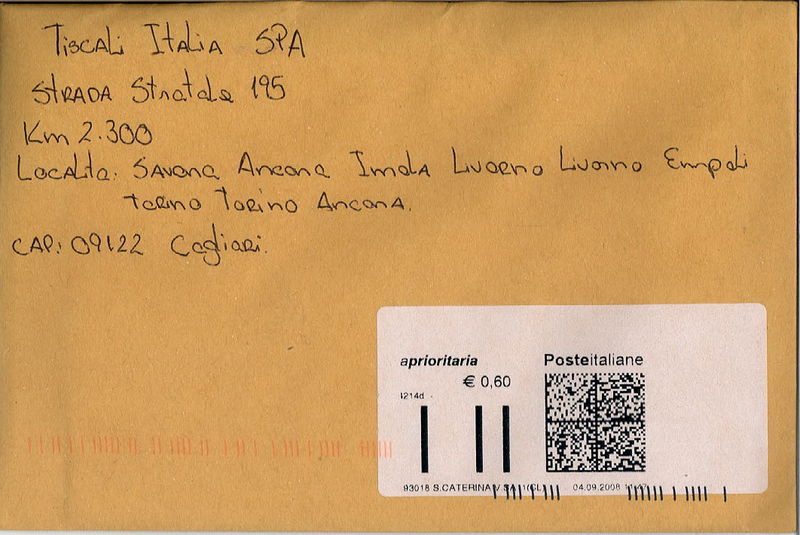 Tiscali Italia SPA
STRADA Statale 195
Km 2.300
Località: Savona Ancona Imola Livorno Livorno Empoli
Torino Torino Ancona.
CAP: 09122 Cagliari.
aprioritaria
Posteitaliane
€ 0,60
4214d
93018 S.CATERINA V.SA 1(CL)
04.09.2008